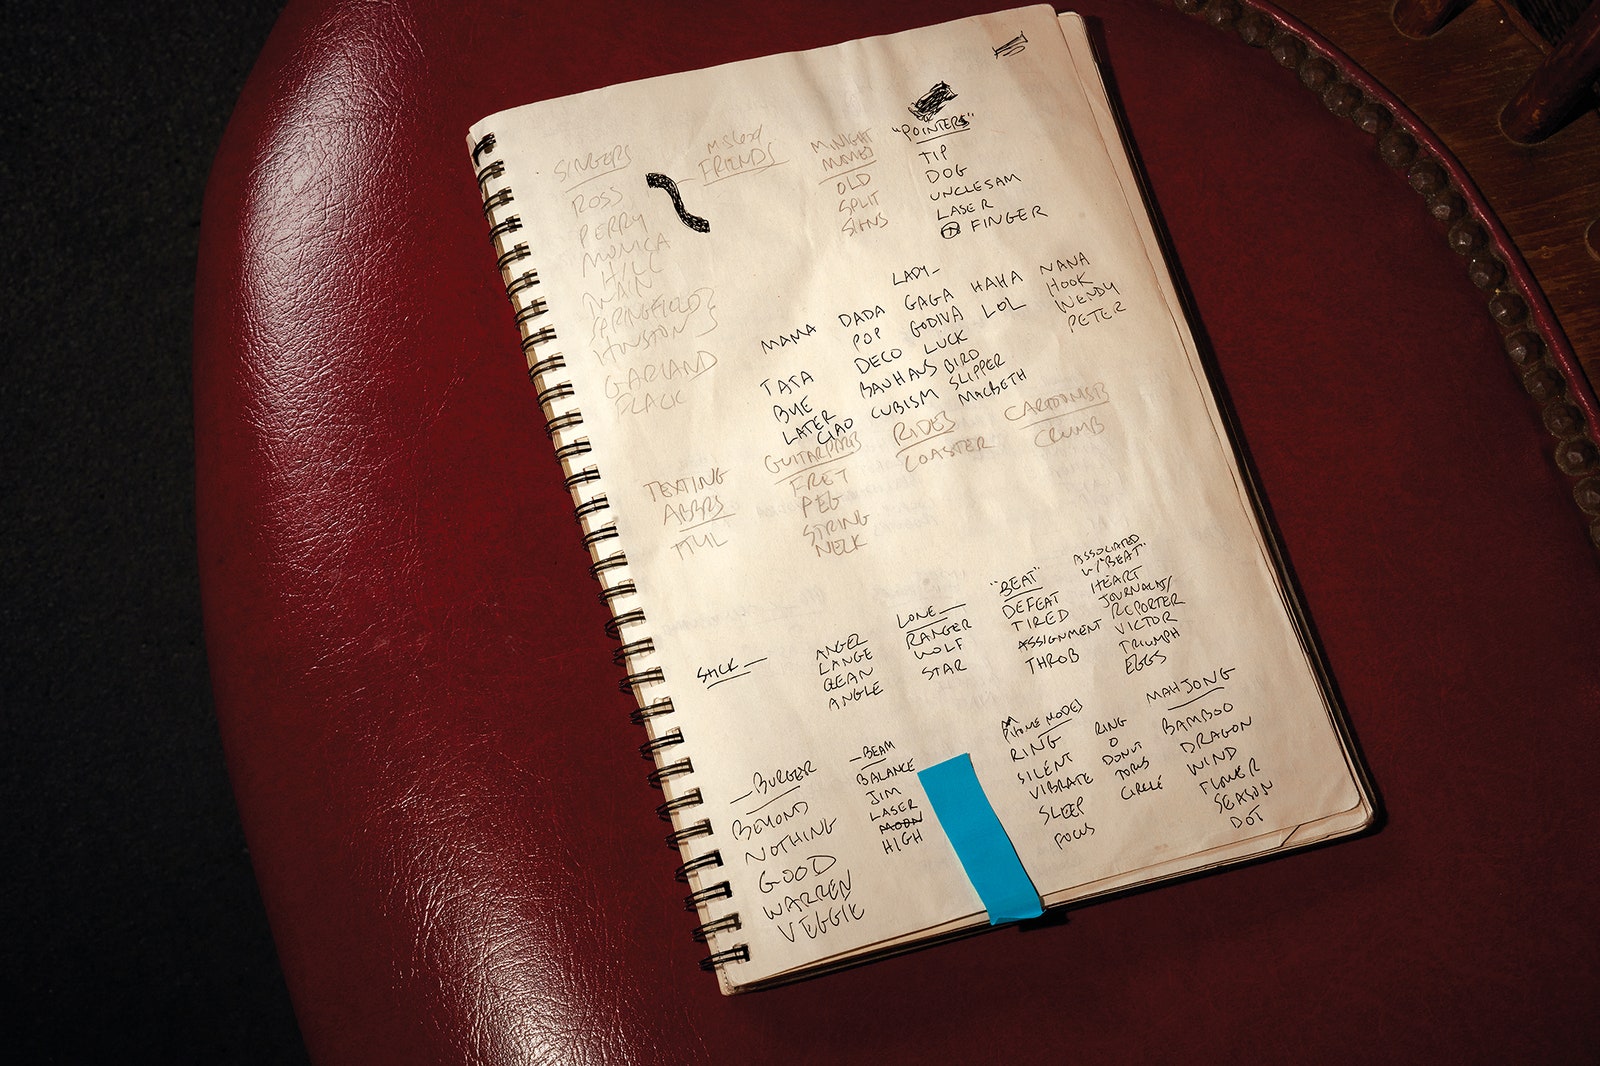 SINGERS
ROSS
PERRY
MONICA
HILL
TWAIN
SPRINGFIELD?
HOUSTON
GARLAND
FLACK
FRIENDS
MIDNIGHT
MOVES
OLD
SPLIT
SIGNS
"POINTERS"
TIP
DOG
UNCLE SAM
LASER
FINGER
MAMA
TATA
BYE
LATER
CIAO
DADA
POP
DECO
BAUHAUS
CUBISM
LADY_
GAGA
GODIVA
LUCK
BIRD
SLIPPER
MACBETH
HAHA
LOL
NANA
HOOK
WENDY
PETER
TEXTING
ABBRS
TTYL
GUITAR PARTS
FRET
PEG
STRING
NECK
RIDES
COASTER
CARTOONISTS
CRUMB
SLICK_
ANGEL
LANGE
GLEAN
ANGLE
LONE_
RANGER
WOLF
STAR
"BEAT"
DEFEAT
TIRED
ASSIGNMENT
THROB
ASSOCIATED
W/"BEAT"
HEART
JOURNALIST/
REPORTER
VICTOR
TRIUMPH
EGGS
_BURGER
BEYOND
NOTHING
GOOD
WARREN
VEGGIE
_BEAM
BALANCE
JIM
LASER
MOON
HIGH
PHONE MODES
RING
SILENT
VIBRATE
SLEEP
FOCUS
RING
O
DONUT
TORUS
CIRCLE
MAHJONG
BAMBOO
DRAGON
WIND
FLOWER
SEASON
DOT